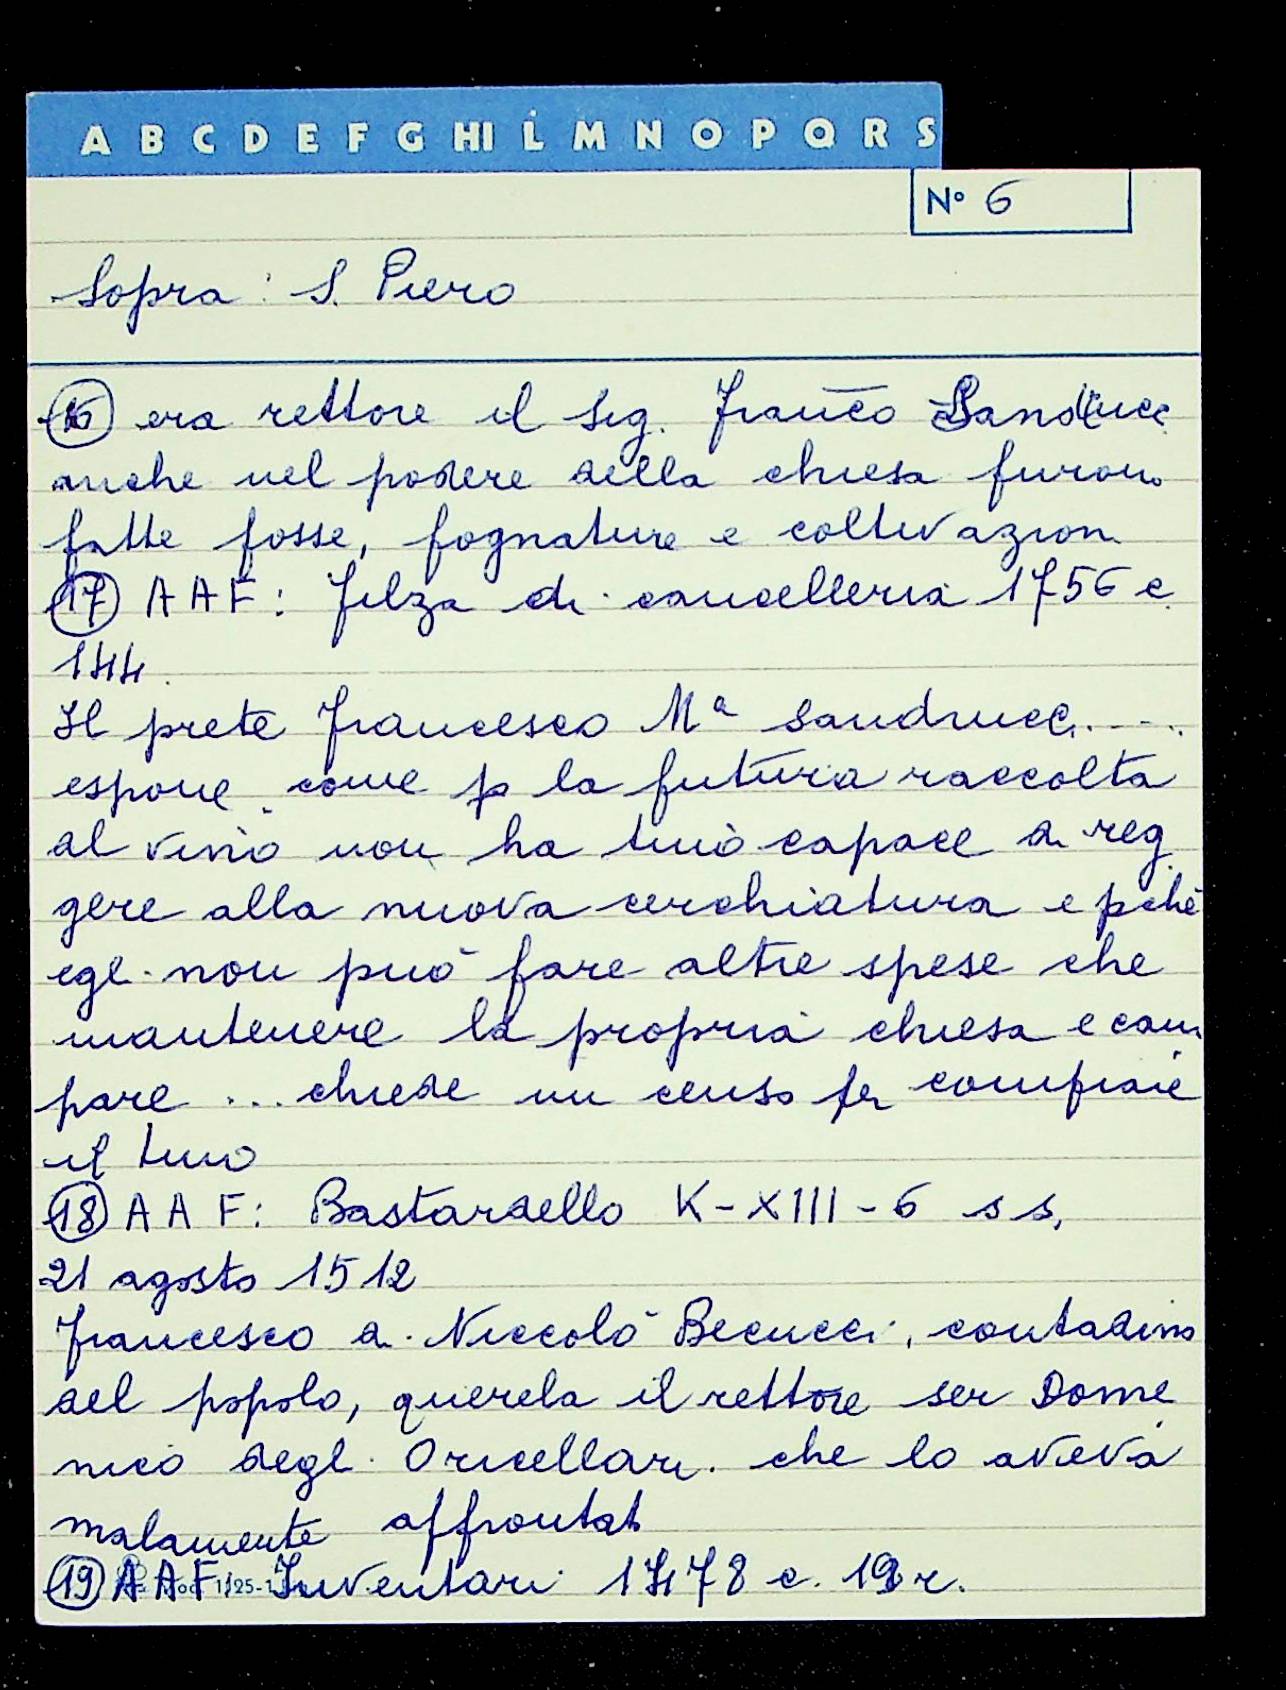 A B C D E F G HI L M N O P Q R S
N° 6
Sopra: S. Piero
16 era rettore il Sig. Franco Sandrucci
anche nel podere della chiesa furono
fatte fosse, fognature e coltivazioni
17 AAF: Filza di cancelleria 1756 c.
144.
Il prete Francesco Mª Sandrucci.....
espone come p la futura raccolta
al vino non ha tino capace a reg
gere alla nuova cerchiatura e pchè
egli non può fare altre spese che
mantenere la propria chiesa e cam
pare ... chiede un censo per comprare
il tino
18 AAF: Bastardello K-XIII-6 ss.
21 agosto 1512
Francesco di Niccolò Becucci, contadino
del popolo, querela il rettore ser Dome
nico degli Oricellari che lo aveva
malamente affrontato
19 AAF: Inventari 1478 c. 19r.